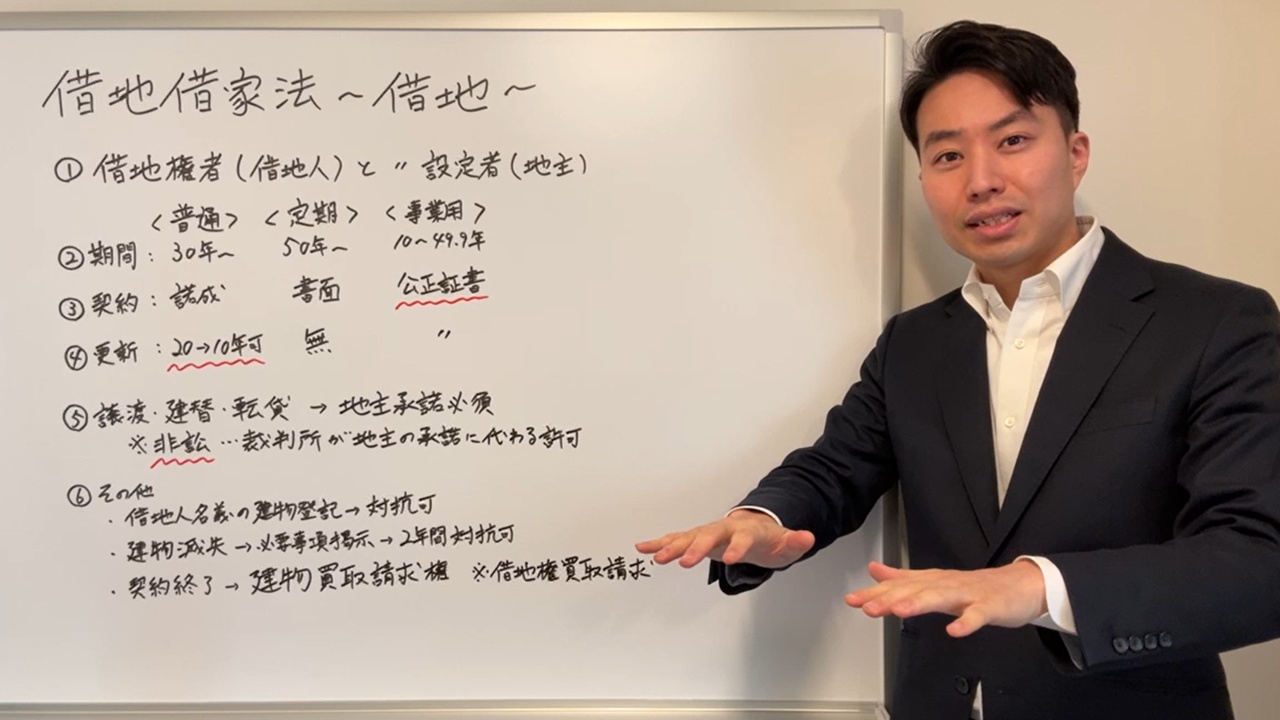 借地借家法～借地～
① 借地権者(借地人)と 〃 設定者(地主)
<普通> <定期> <事業用>
② 期間: 30年～ 50年～ 10～49.9年
③ 契約: 諾成 書面 公正証書
④ 更新: 20→10年可 無 〃
⑤ 譲渡・建替・転貸 → 地主承諾必須
※非訟…裁判所が地主の承諾に代わる許可
⑥ その他
・借地人名義の建物登記→対抗可
・建物滅失→必要事項掲示→2年間対抗可
・契約終了→建物買取請求権 ※借地権買取請求